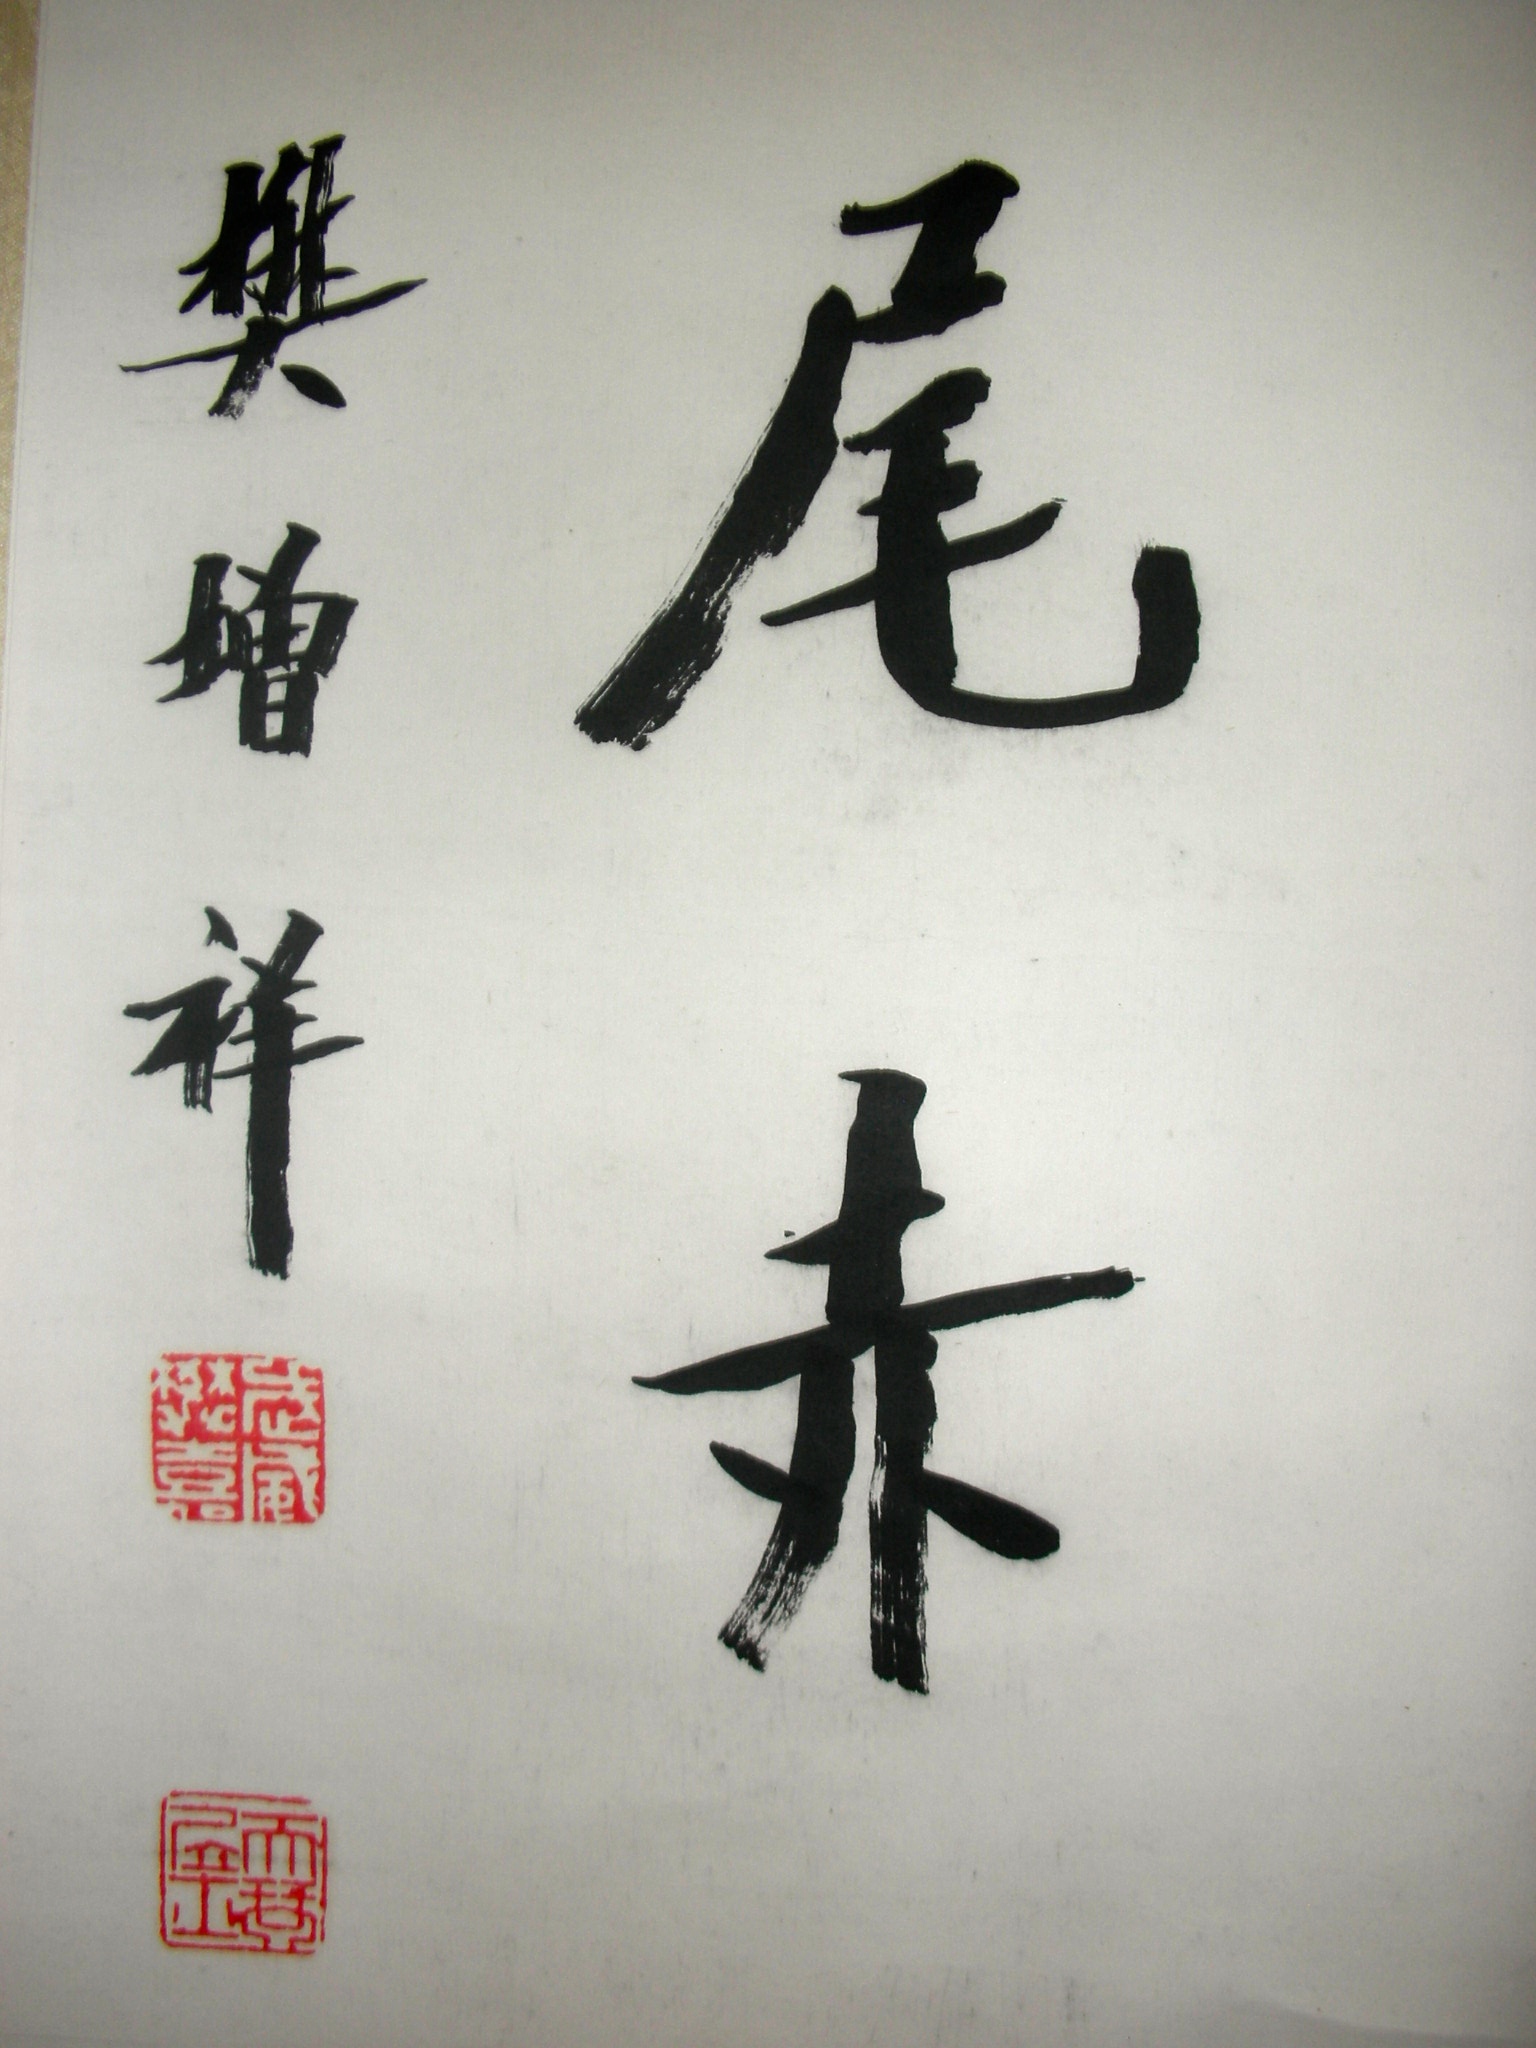 尾赤
樊增祥